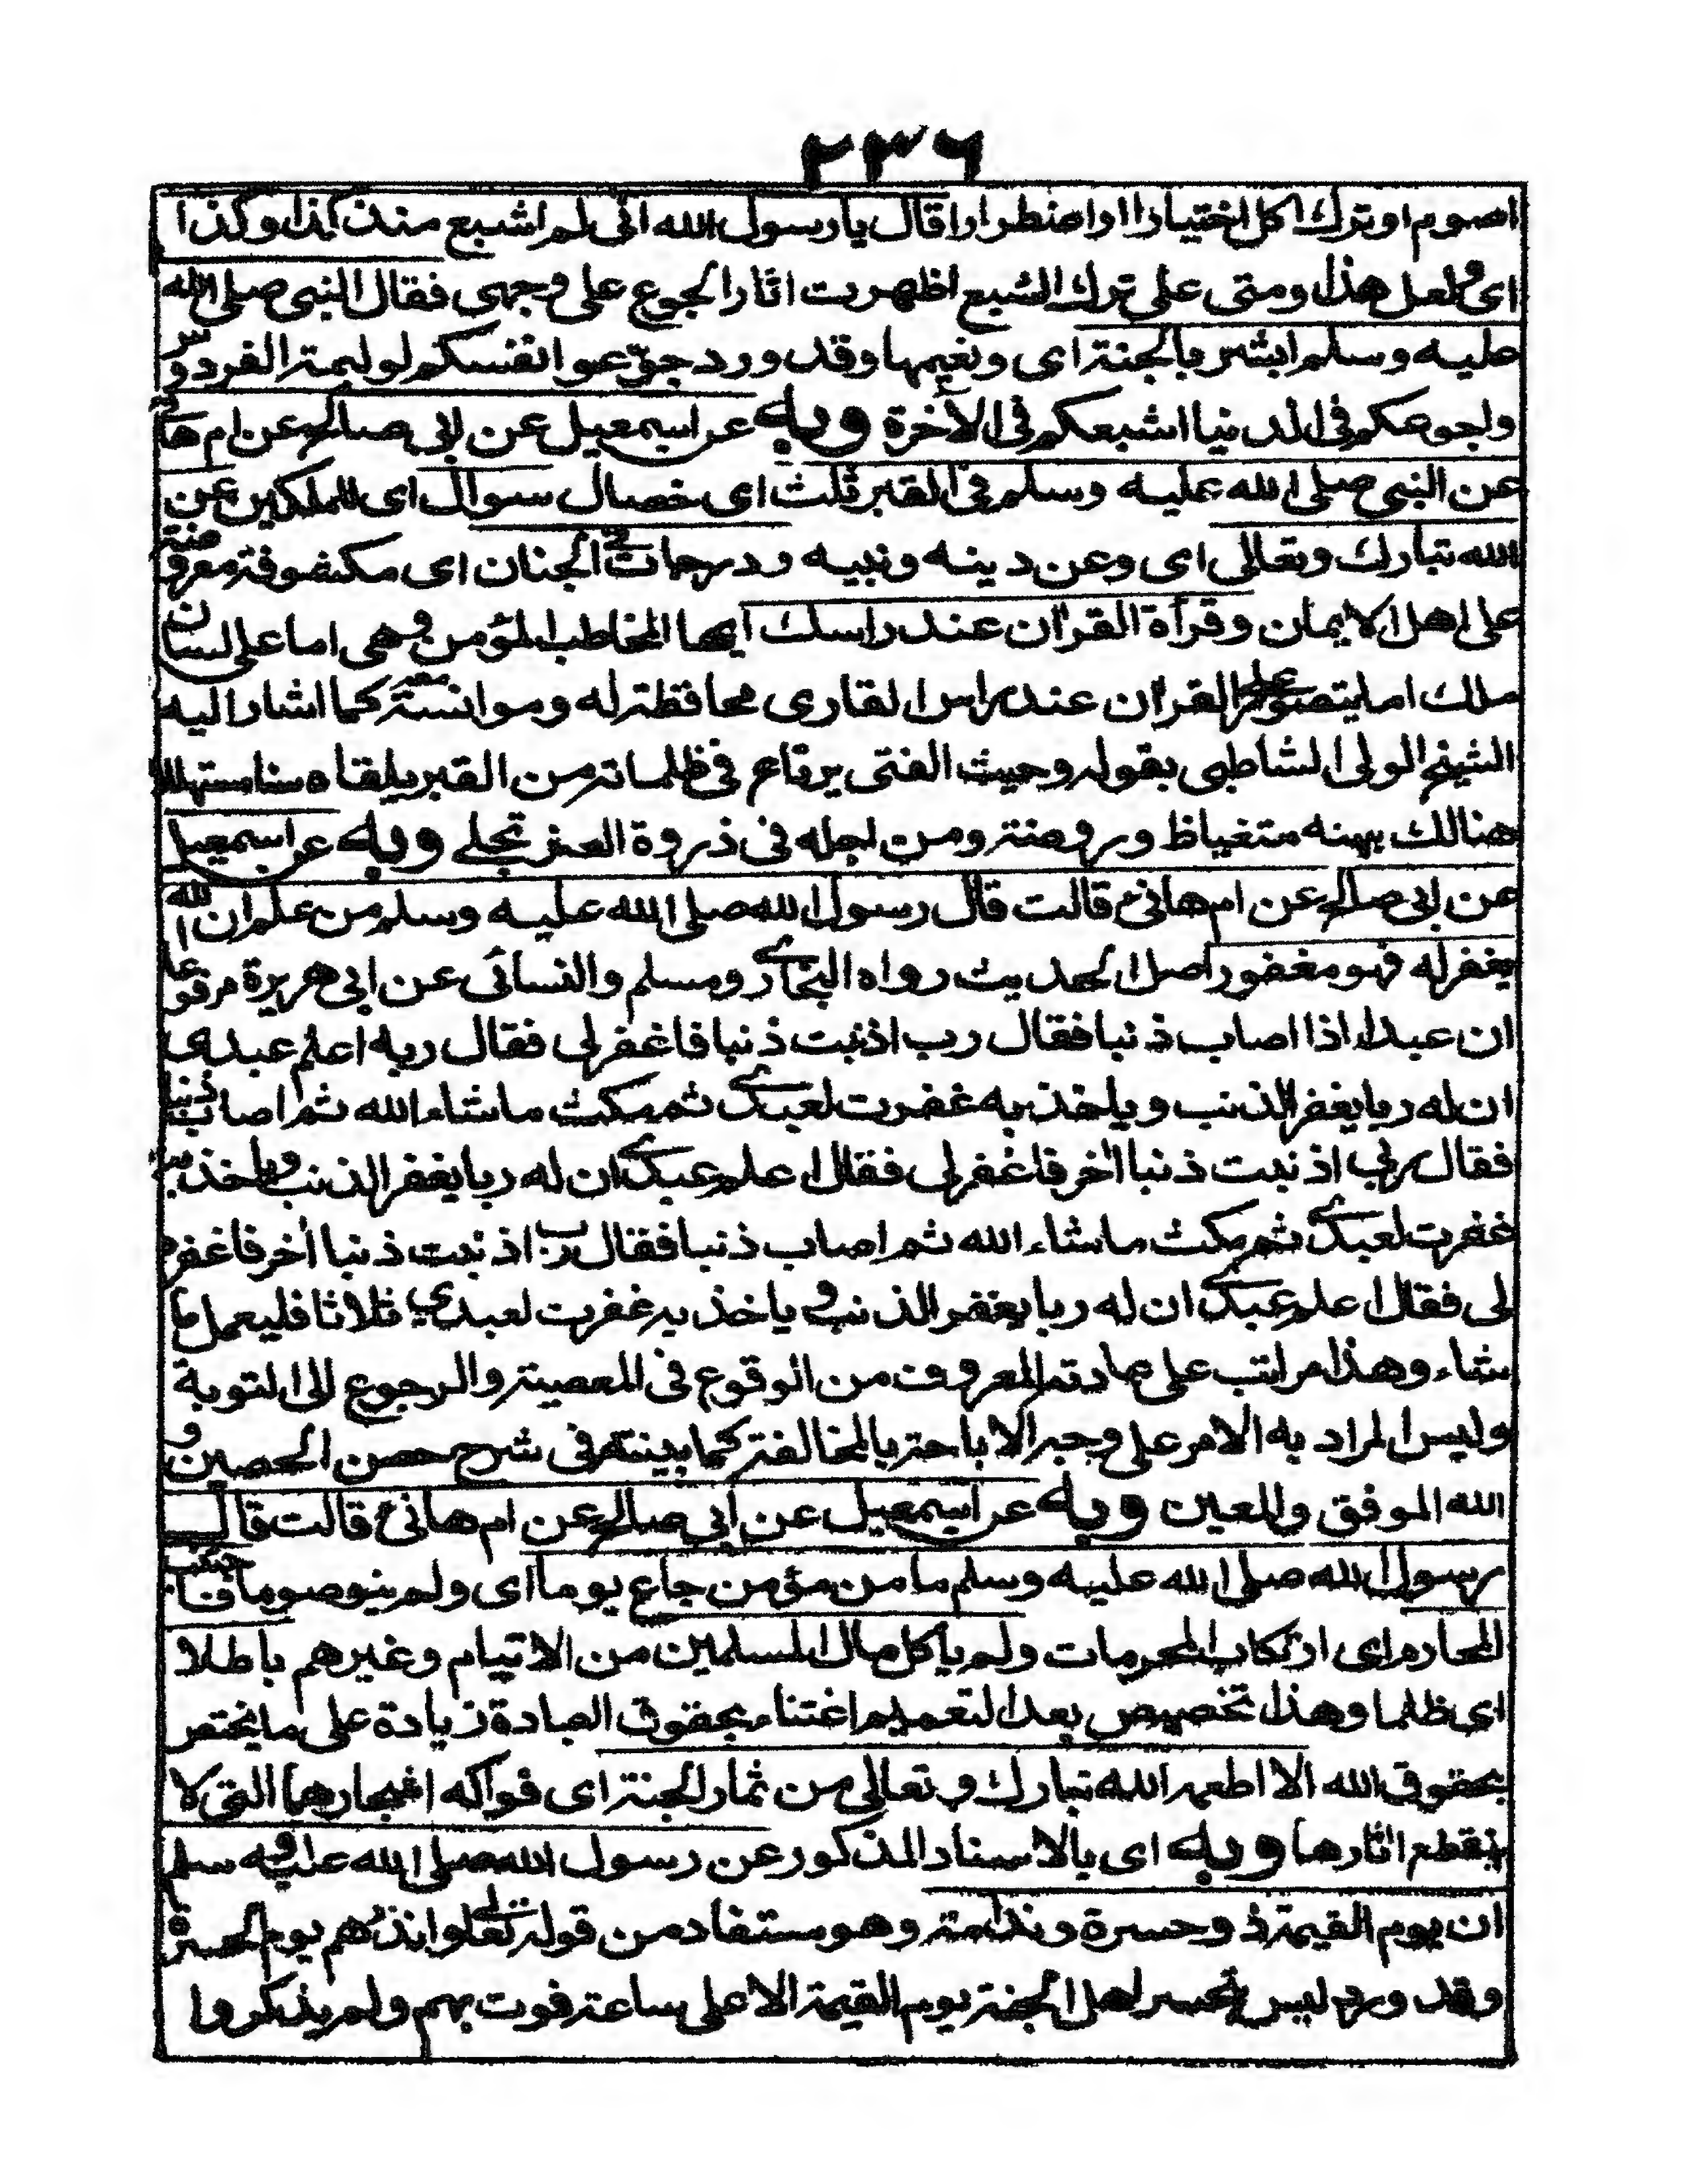 ٢٣٦
لصوم او ترك اكل اختيارا او اضطرارا قال يا رسول الله انى لم اشبع منذ كذا وكذا
اى ولعل هذا ومتى على ترك الشبع اظهرت اثار الجوع على وجهى فقال النبى صلى الله
عليه وسلم ابشر بالجنة اى ونعيمها وقد ورد جوّعوا انفسكم لوليمة الفردوس
ولجوعكم فى الدنيا اشبعكم فى الآخرة وبه عن اسمعيل عن ابى صالح عن ام هانى
عن النبى صلى الله عليه وسلم فى القبر ثلث اى خصال سوال اى للملكين عن
الله تبارك وتعالى اى وعن دينه ونبيه ودرجات فى الجنان اى مكشوفة معروضة
على اهل الايمان وقرأة القرآن عند راسك ايها المخاطب المؤمن وهى اما على لسان
ملك اما يتصور القرآن عند راس القارى محافظة له وموانسة معه كما اشار اليه
الشيخ الولى الشاطبى بقوله وحيث الفتى يرتاع فى ظلماته من القبر يلقاه سنا متهللا
هنالك يهنه متغياظ وروضة ومن اجله فى ذروة العز تجلے وبه عن اسمعيل
عن ابى صالح عن ام هانئ قالت قال رسول الله صلى الله عليه وسلم من علم ان الله
يغفر له فهو مغفور اصل الحديث رواه البخارى ومسلم والنسائى عن ابى هريرة مرفوعا
ان عبدا اذا اصاب ذنبا فقال رب اذنبت ذنبا فاغفر لى فقال ربه اعلم عبدى
ان له ربا يغفر الذنب وياخذ به غفرت لعبدى ثم مكث ما شاء الله ثم اصاب ذنبا
فقال ربى اذنبت ذنبا اٰخر فاغفر لى فقال اعلم عبدى ان له ربا يغفر الذنب وياخذ به
غفرت لعبدى ثم مكث ما شاء الله ثم اصاب ذنبا فقال رب اذنبت ذنبا اٰخر فاغفر
لى فقال اعلم عبدى ان له ربا يغفر الذنب و ياخذ به غفرت لعبدى ثلاثا فليعمل ما
شاء وهذا مراتب على عادته المعروف من الوقوع فى المعصية والرجوع الى التوبة
وليس المراد به الامر على وجه الاباحة بالمخالفة كما بينته فى شرح حصن الحصين و
الله الموفق والمعين وبه عن اسمعيل عن ابى صالح عن ام هانئ قالت قال
رسول الله صلى الله عليه وسلم ما من مؤمن جاع يوما اى ولم ينو صوما فاجتنب
المحارم اى ارتكاب المحرمات ولم ياكل مال المسلمين من الايتام وغيرهم باطلا
اى ظلما وهذا تخصيص بعد التعميم اغتناء بحقوق العبادة زيادة على ما يختص
بحقوق الله الا اطعمه الله تبارك و تعالى من ثمار الجنة اى فواكه اشجارها التى لا
ينقطع اثارها وبه اى بالاسناد المذكور عن رسول الله صلى الله عليه وسلم
ان يوم القيمة ذو حسرة وندامة وهو مستفاد من قوله تعالى وانذرهم يوم الحسرة
وقد ورد ليس يتحسر اهل الجنة يوم القيمة الا على ساعة فوت بهم ولم يذكروا